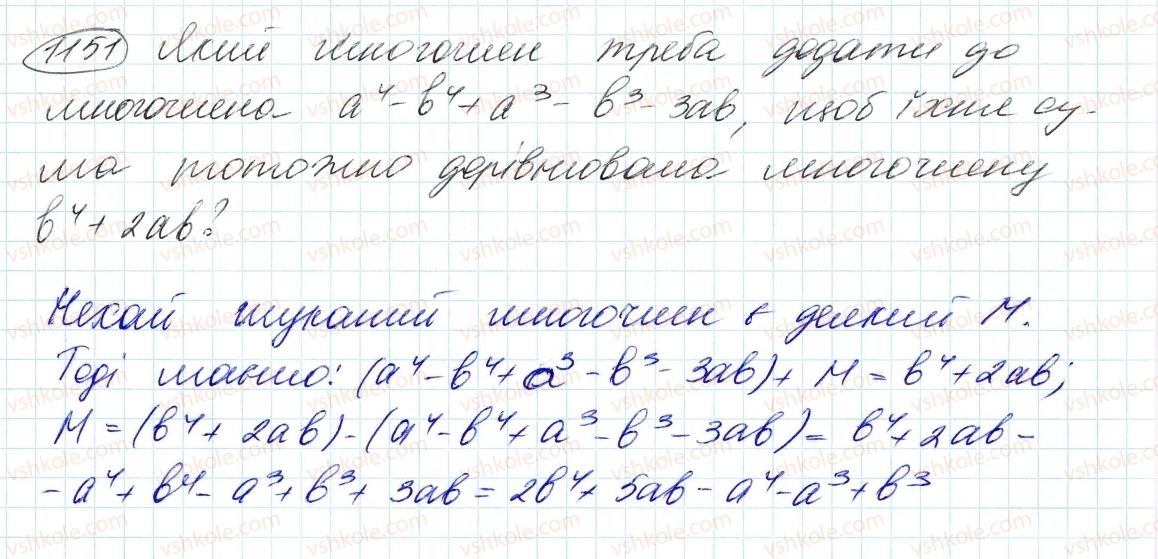 1151 Який многочлен треба додати до
многочлена a⁴-b⁴+a³-b³-3ab, щоб їхня су-
ма тотожно дорівнювала многочлену
b⁴+2ab?
Нехай шуканий многочлен є деякий M.
Тоді маємо: (a⁴-b⁴+a³-b³-3ab)+M=b⁴+2ab;
M=(b⁴+2ab)-(a⁴-b⁴+a³-b³-3ab)=b⁴+2ab-
-a⁴+b⁴-a³+b³+3ab=2b⁴+5ab-a⁴-a³+b³